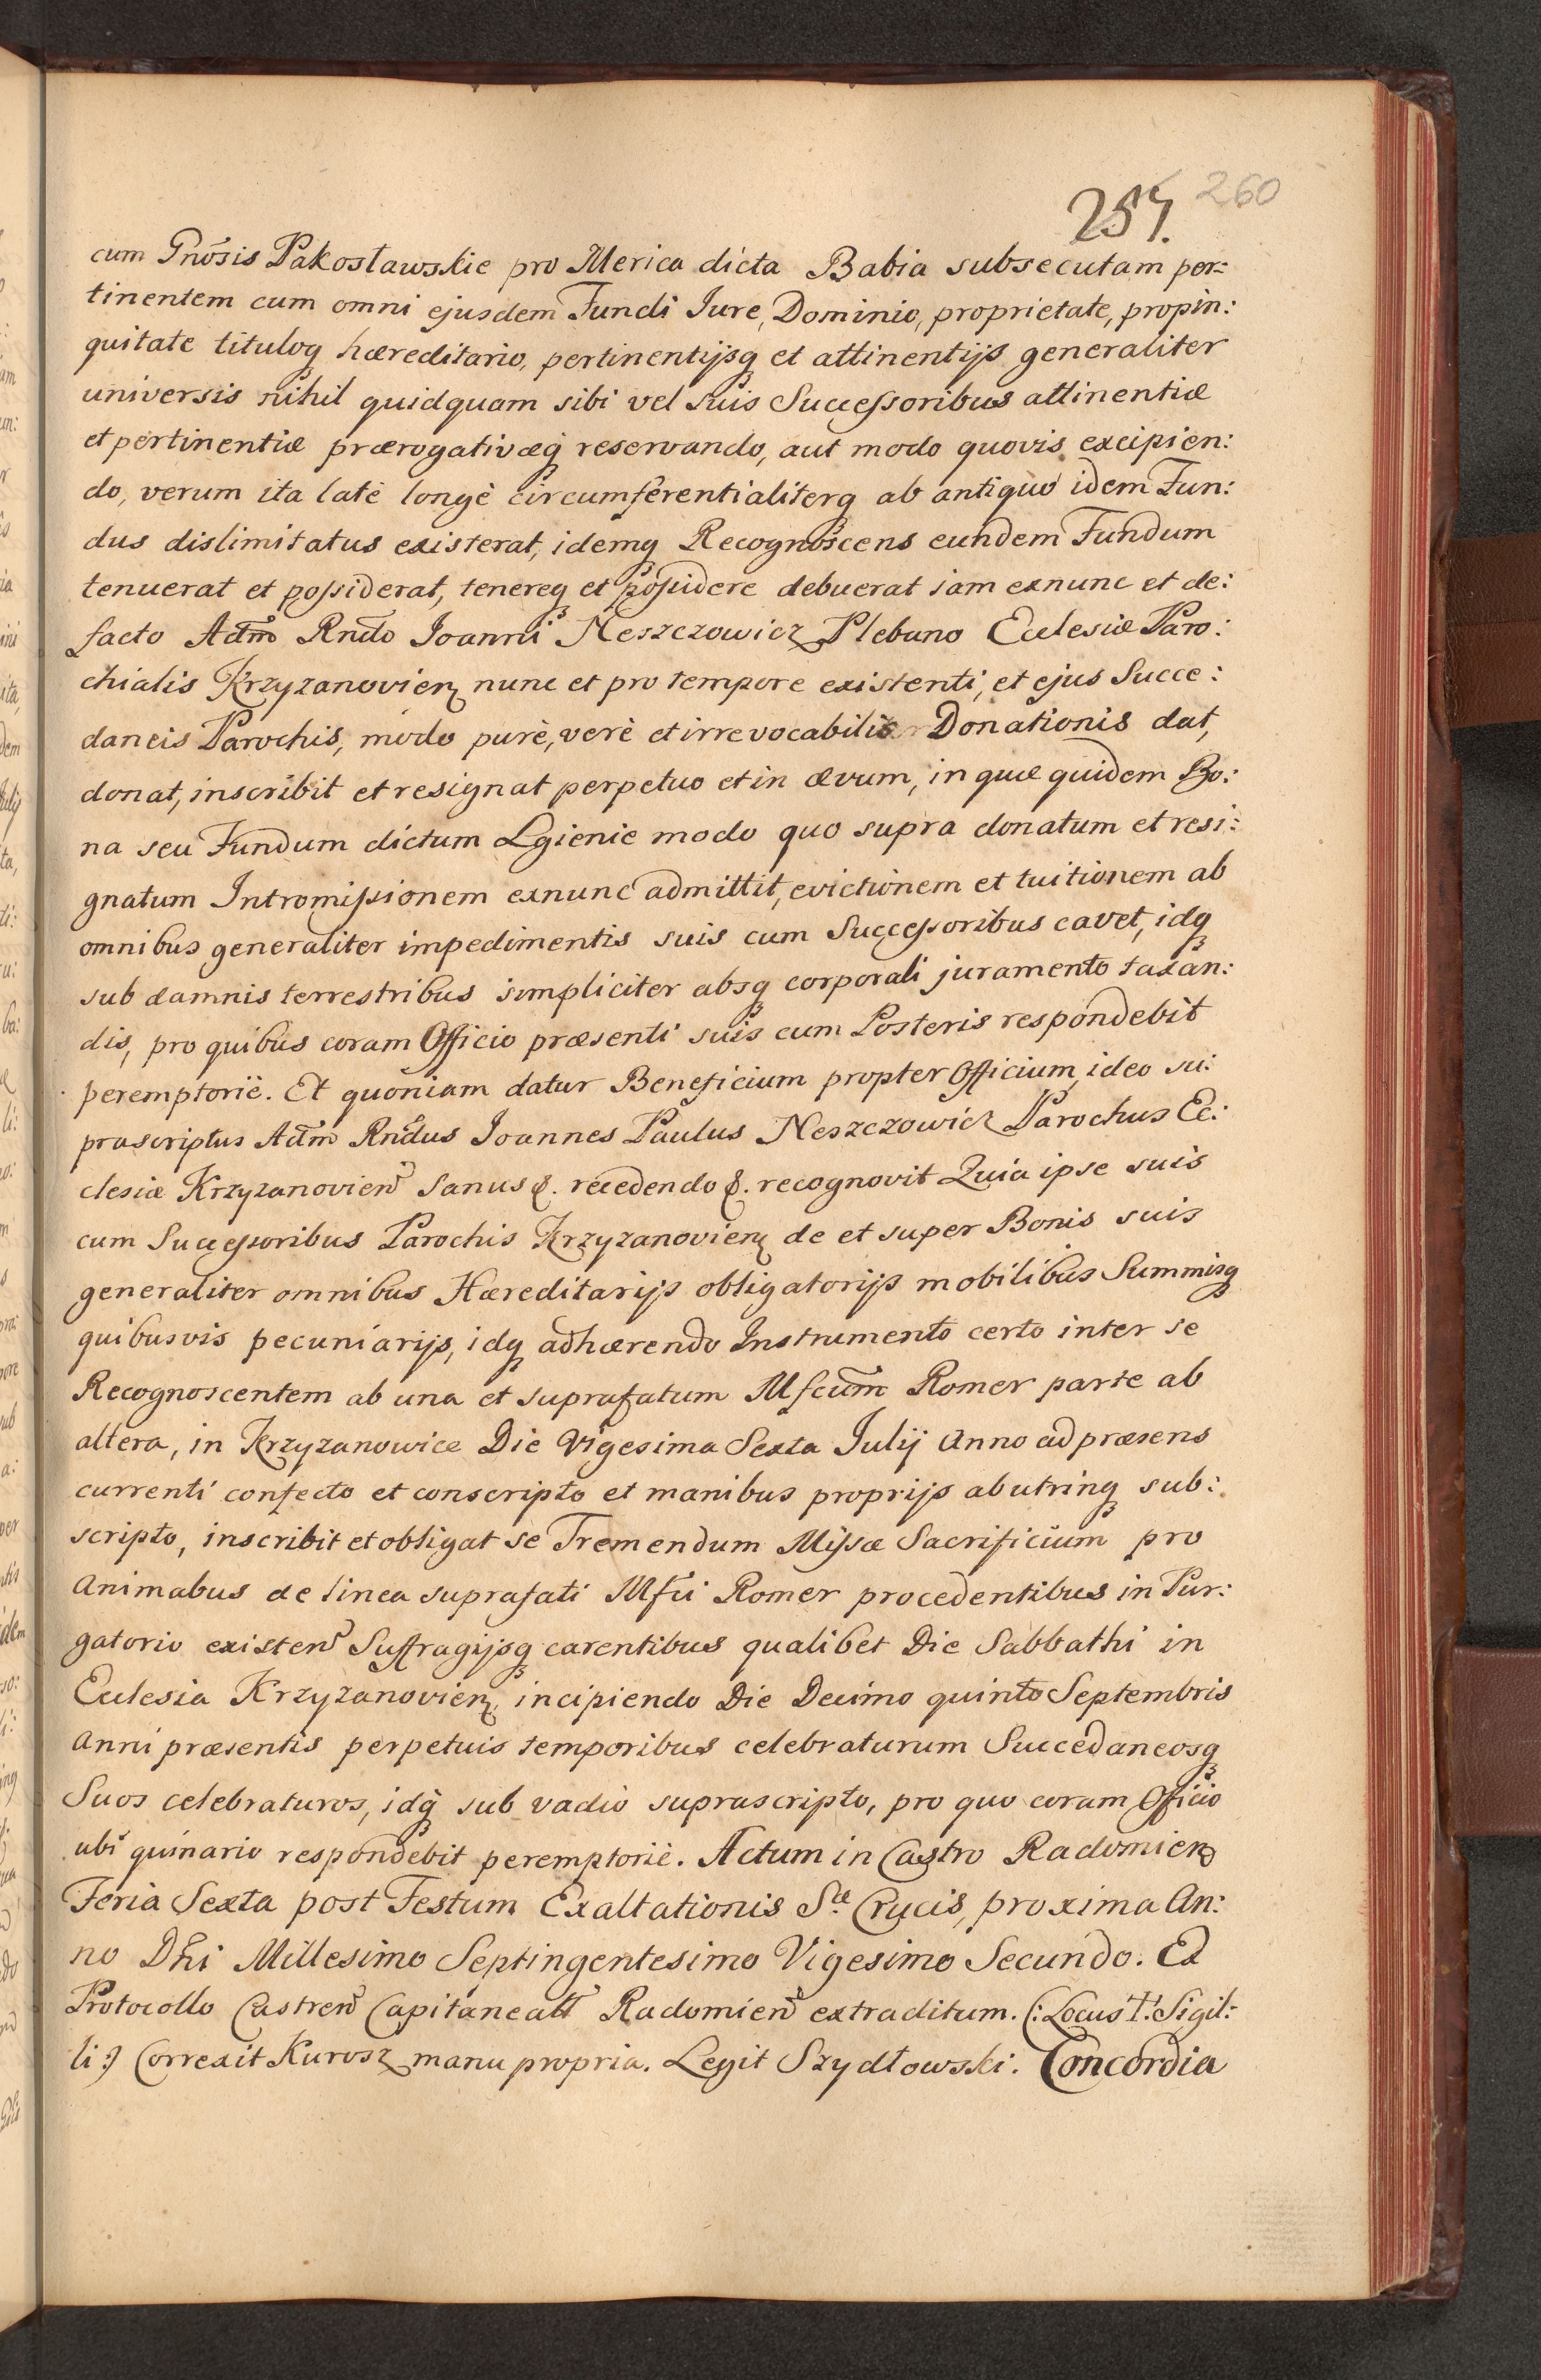 257. 260
cum Gnōsis Pakosławskie pro Merica dicta Babia subsecutam per:
tinentem cum omni ejusdem Fundi Iure, Dominio, proprietate, propin:
quitate tituloq hæreditario, pertinentijsq et attinentijs generaliter
universis nihil quidquam sibi vel suis Successoribus attinentiæ
et pertinentiæ prærogativæq reservando, aut modo quovis excipien:
do, verum ita latè longè circumferentialiterq ab antiquo idem Fun:
dus dislimitatus existerat, idemq Recognoscens eundem Fundum
tenuerat et possiderat, tenereq et possidere debuerat iam exnunc et de:
facto Adm̄ Rndo Ioanni Neszczowicz Plebano Ecclesiæ Paro:
chialis Krzyzanovien nunc et pro tempore existenti, et ejus Succe:
daneis Parochis, modo purè, verè et irrevocabilis Donationis dat,
donat, inscribit et resignat perpetuo et in ævum, in quæ quidem Bo:
na seu Fundum dictum Lgienie modo quo supra donatum et resi:
gnatum Intromissionem exnunc admittit, evictionem et tuitionem ab
omnibus generaliter impedimentis suis cum Successoribus cavet, idq
sub damnis terrestribus simpliciter absq corporali juramento taxan:
dis, pro quibus coram Officio præsenti suis cum Posteris respondebit
peremptoriè. Et quoniam datur Beneficium propter Officium, ideo su:
prascriptus Adm̄ Rndus Ioannes Paulus Neszczowicz Parochus Ec:
clesiæ Krzyzanovien Sanus &. recedendo &. recognovit Quia ipse suis
cum Successoribus Parochis Krzyzanovien de et super Bonis suis
generaliter omnibus Hæreditarijs obligatorijs mobilibus Summisq
quibusvis pecuniarijs, idq adhærendo Instrumento certo inter se
Recognoscentem ab una et suprafatum Mfcum̄ Romer parte ab
altera, in Krzyzanowice Die Vigesima Sexta Iulij Anno ad præsens
currenti confecto et conscripto et manibus proprijs ab utrinq sub:
scripto, inscribit et obligat se Tremendum Missæ Sacrificium pro
Animabus de linea suprafati Mfci Romer procedentibus in Pur:
gatorio existen Suffragijsq carentibus qualibet Die Sabbathi in
Ecclesia Krzyzanovien, incipiendo Die Decimo quinto Septembris
Anni præsentis perpetuis temporibus celebraturum Succedaneosq
Suos celebraturos, idq sub vadio suprascripto, pro quo coram Officio
ubi quinario respondebit peremptoriè. Actum in Castro Radomien
Feria Sexta post Festum Exaltationis S.æ Crucis, proxima An:
no Dni Millesimo Septingentesimo Vigesimo Secundo. Ex
Protocollo Castren Capitaneatt Radomien extraditum. (: Locus T.: Sigil:
li :) Correxit Kurosz manu propria. Legit Szydłowski. Concordia